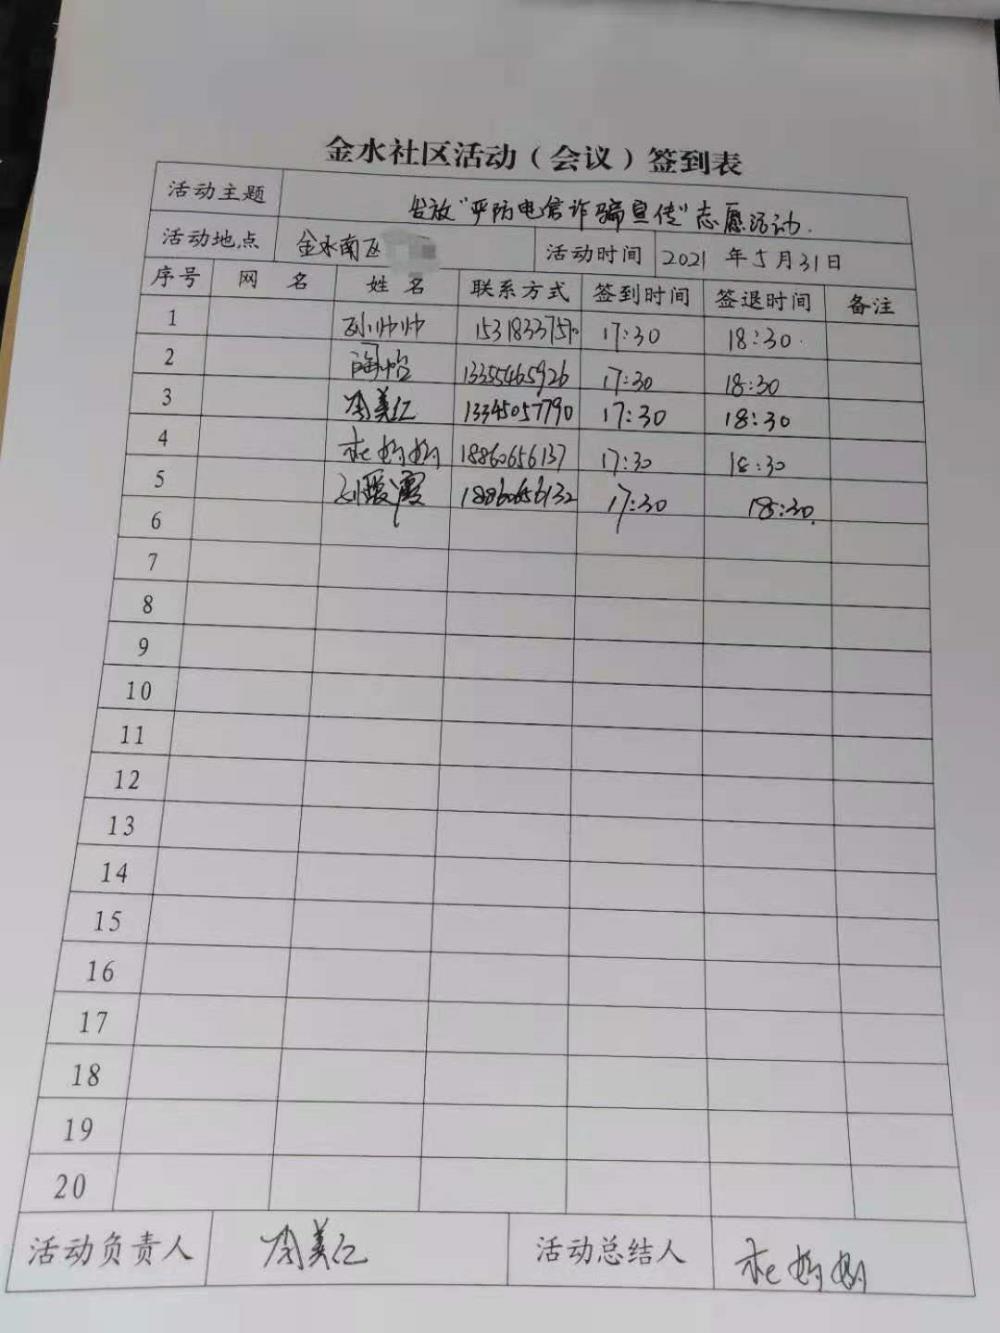 金水社区活动（会议）签到表
活动主题 发放"严防电信诈骗宣传"志愿活动.
活动地点 金水南区 活动时间 2021 年 5 月 31 日
序号 网 名 姓 名 联系方式 签到时间 签退时间 备注
1 孙帅帅 17:30 18:30
2 陶怡 13355465926 17:30 18:30
3 周美仁 13345057790 17:30 18:30
4 18860656137 17:30 18:30
5 18860656132 17:30 18:30.
6
7
8
9
10
11
12
13
14
15
16
17
18
19
20
活动负责人 周美仁 活动总结人